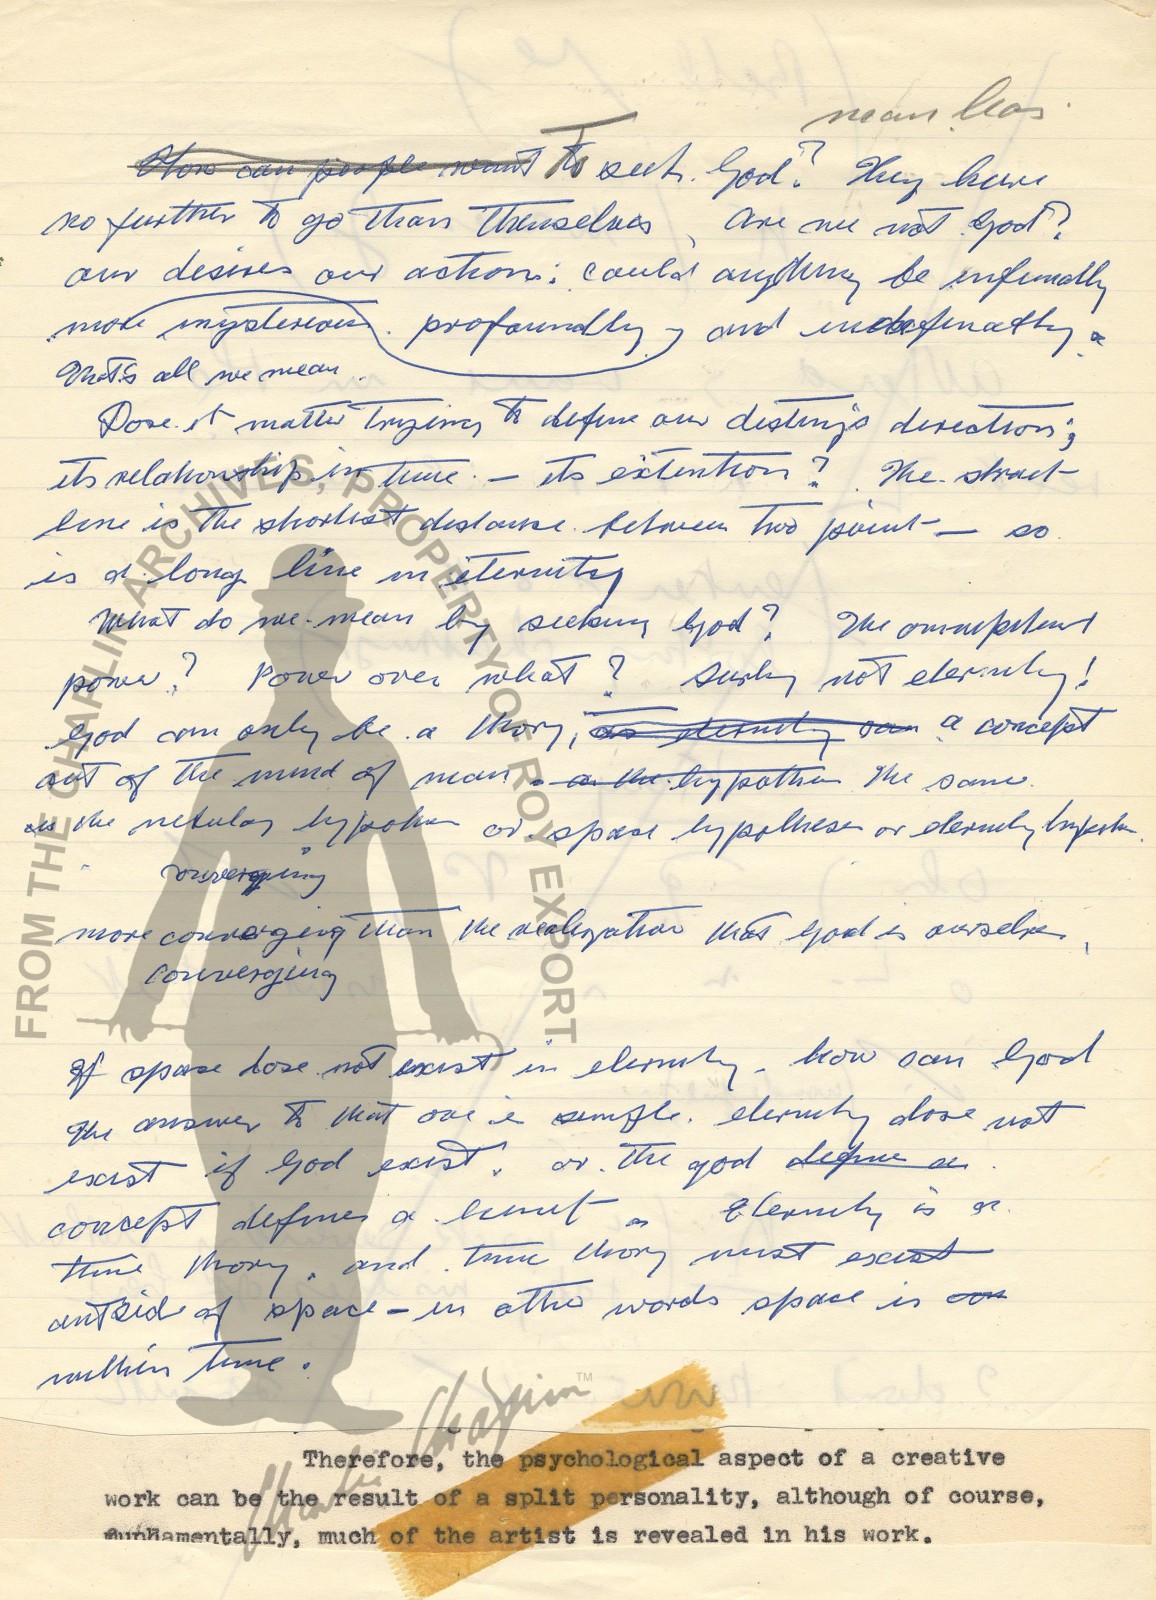 man has
How can people want To seek God? They have
no further to go than themselves, are we not God?
our desires our actions; could anything be infinitely
more mysterious. profoundly, and indefinatly.
That's all we mean.
Dose it matter trying to define our destiny's direction;
its relationship in time. — its extention? The strait
line is the shortest distance between two point — so
is a long line in eternity
What do we mean by seeking God? The omnipitent
power? Power over what? Surly not eternity!
God can only be a thory, as eternity can a concept
out of the mind of man. as the hypothu The same
as the nebulay or space hypothesis or eternity
converging
more converging than the realization that God is ourselves,
converging
If space dose not exist in eternity. how can God
The answer to that one is simple. eternity dose not
exist if God exist. or the god define a
concept defines a limit. Eternity is a
time thory. and time thory must exist
outside of space — in other words space is
within time.
Therefore, the psychological aspect of a creative
work can be the result of a split personality, although of course,
fundamentally, much of the artist is revealed in his work.
FROM THE CHAPLIN ARCHIVES, PROPERTY OF ROY EXPORT
Charlie Chaplin™